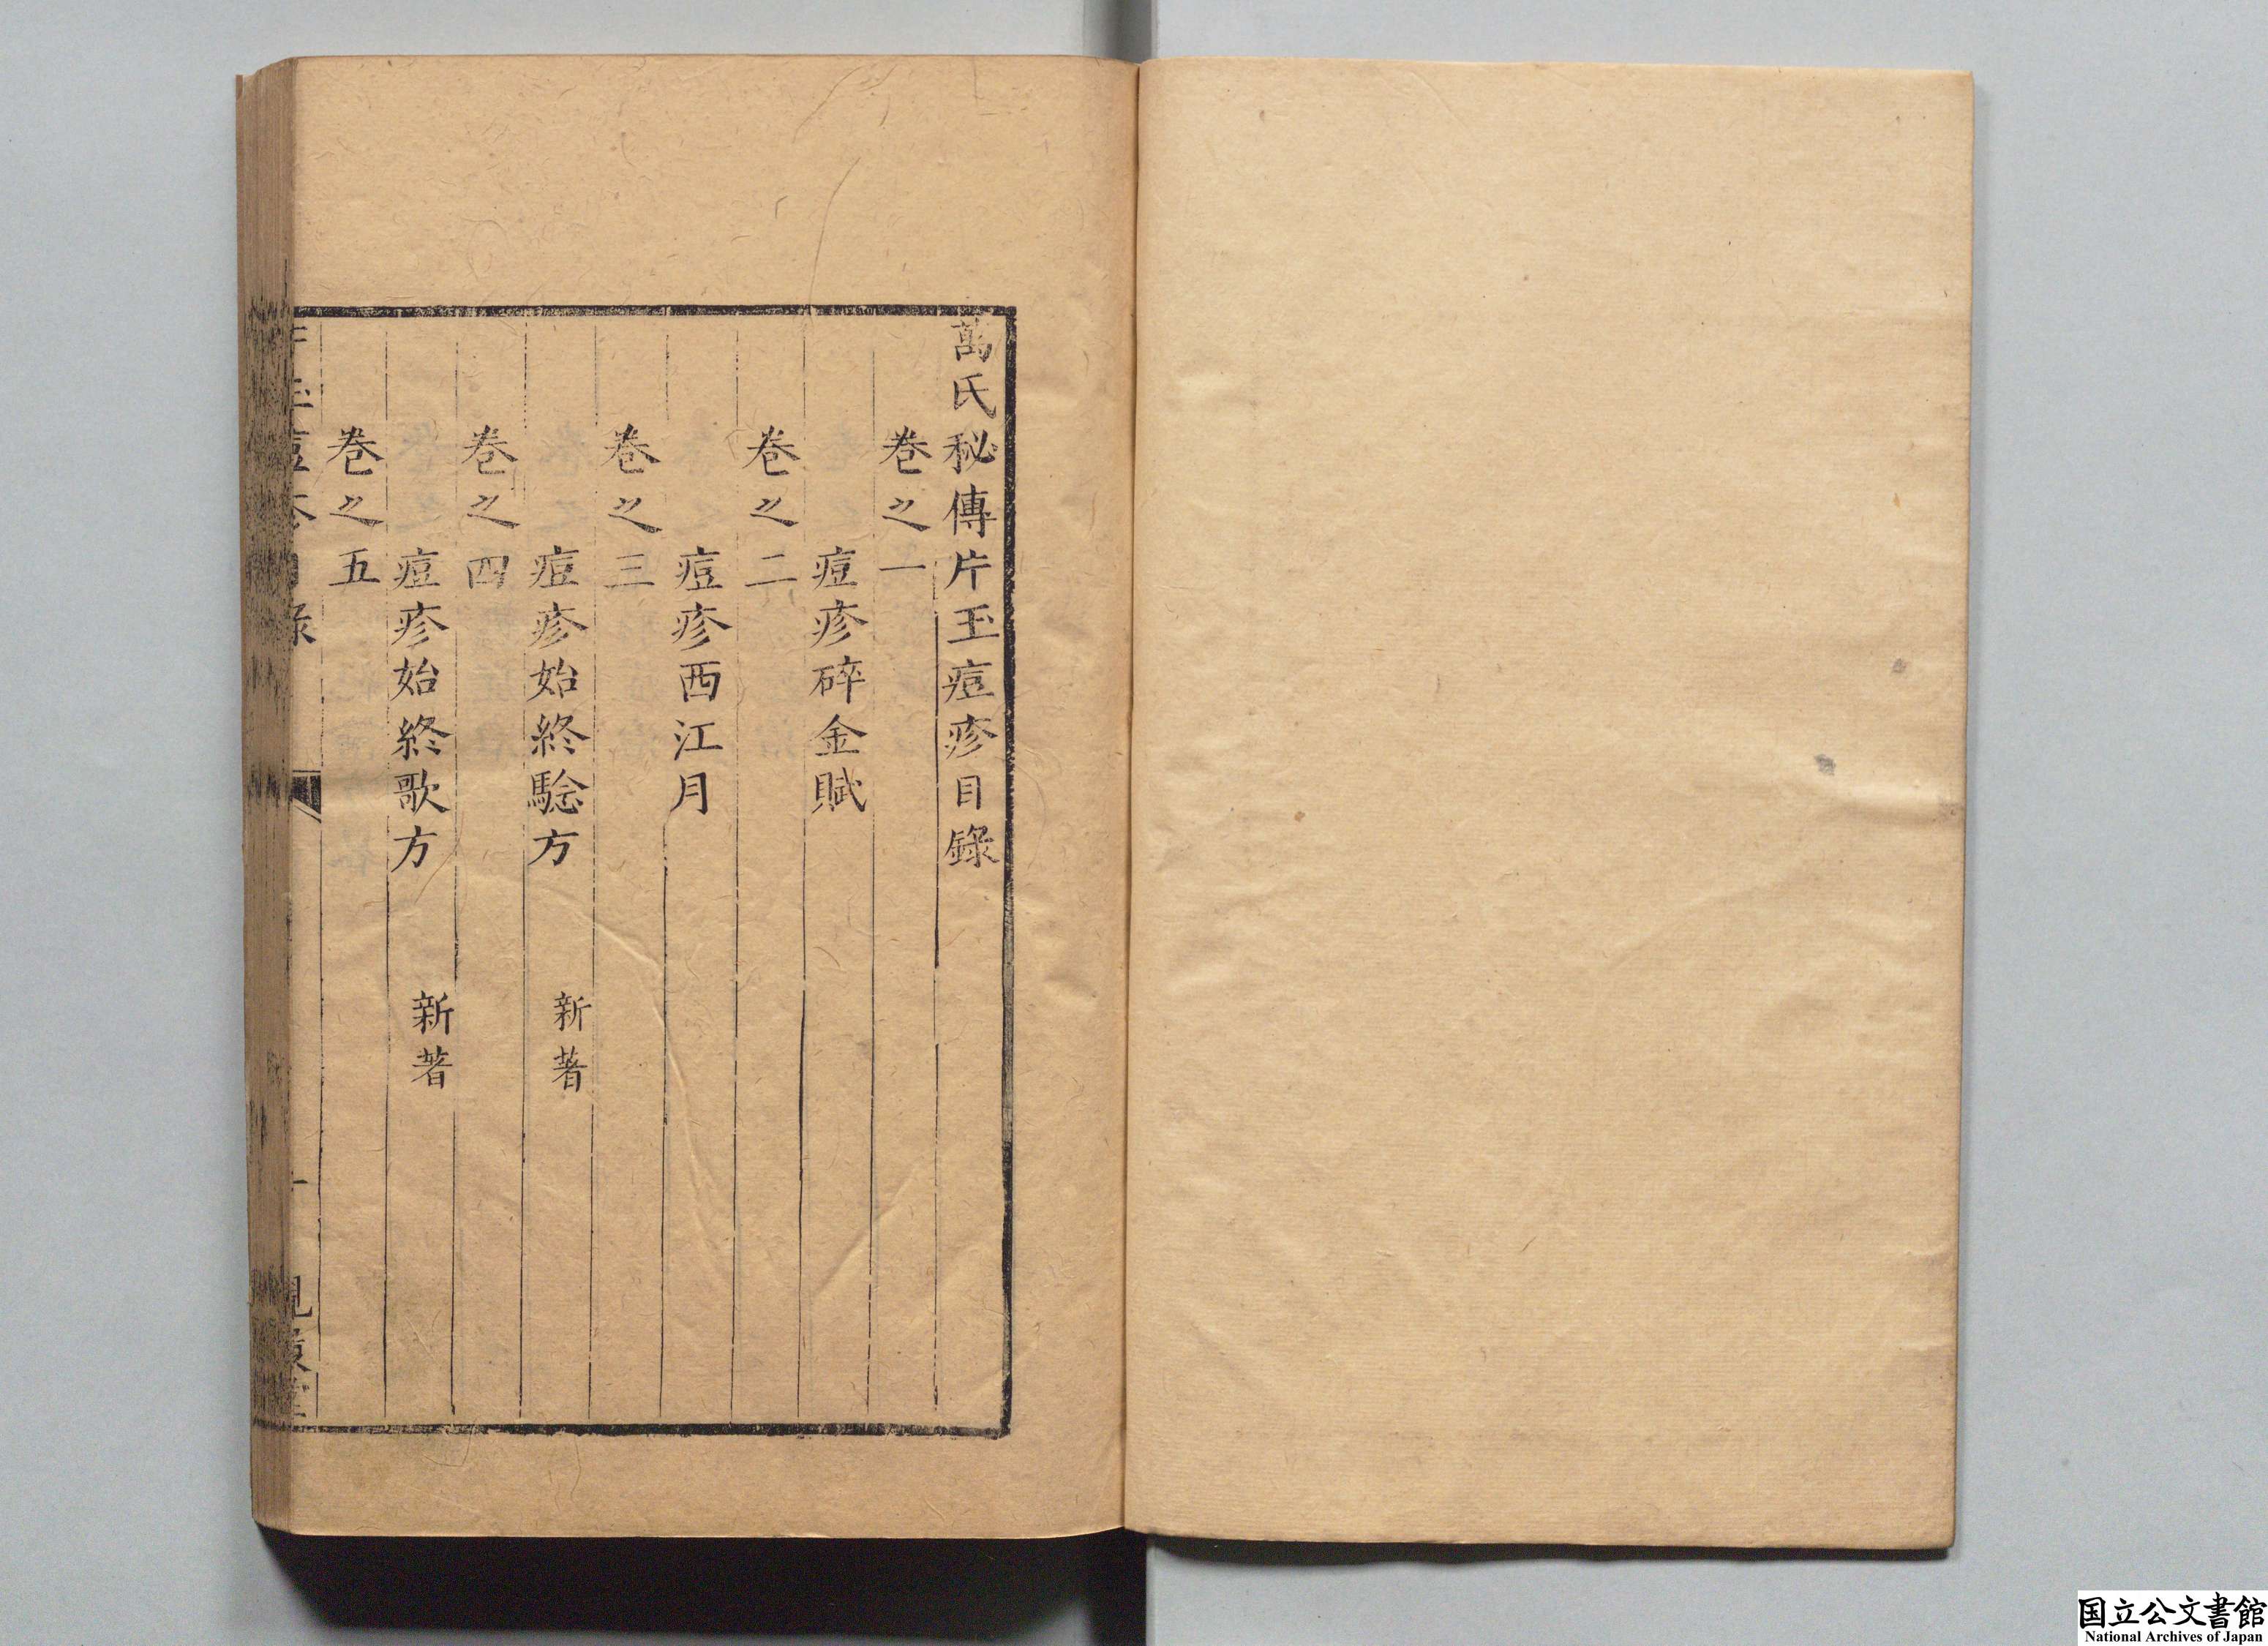 萬氏秘傳片玉痘疹目錄
卷之一
痘疹碎金賦
卷之二
痘疹西江月
卷之三
痘疹始終騐方 新著
卷之四
痘疹始終歌方 新著
卷之五
国立公文書館
National Archives of Japan